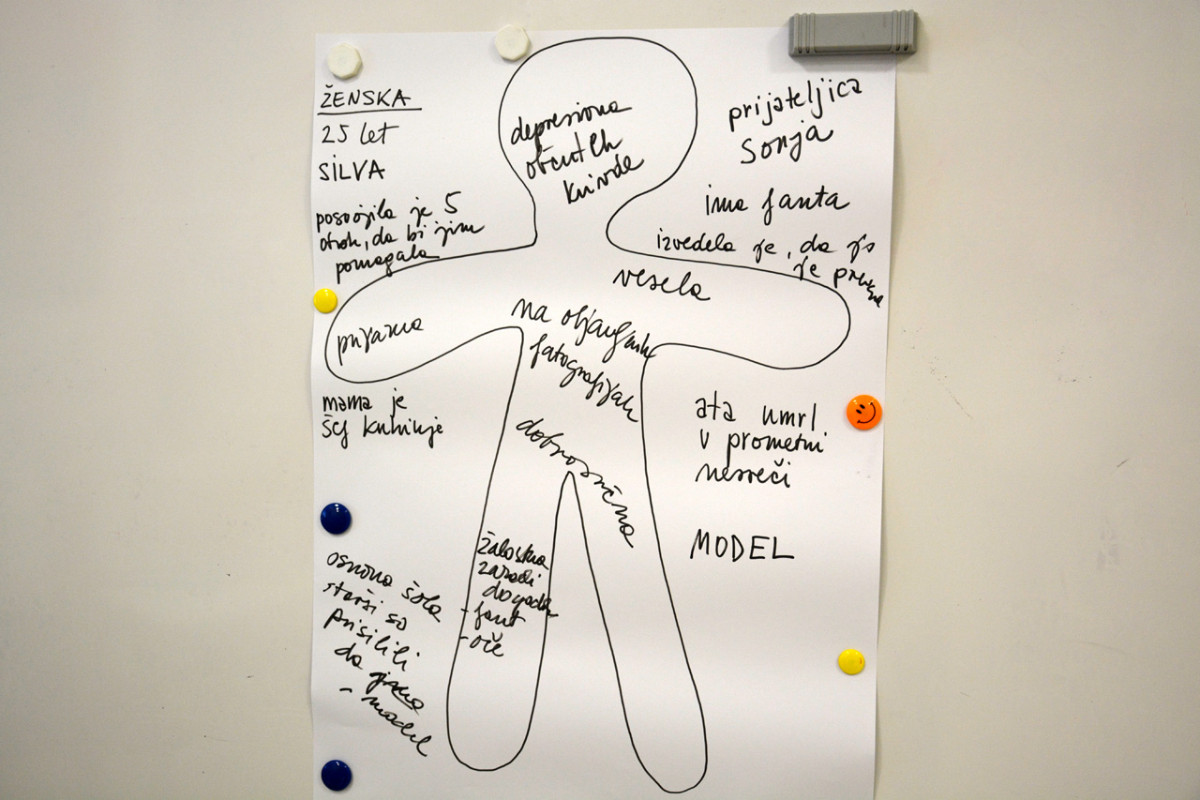 ŽENSKA
25 let
SILVA
posvojila je 5
otrok, da bi jim
pomagala
depresivna
občutek
krivde
prijateljica
Sonja
ima fanta
izvedela je, da jo
je
vesela
prijazna
na
fotografijah
dobrosrčna
mama je
še
ata umrl
v prometni
nesreči
MODEL
žalostna
zaradi
dogodk
- fant
- oče
osnovna šola
starši so
prisilili
da
- model